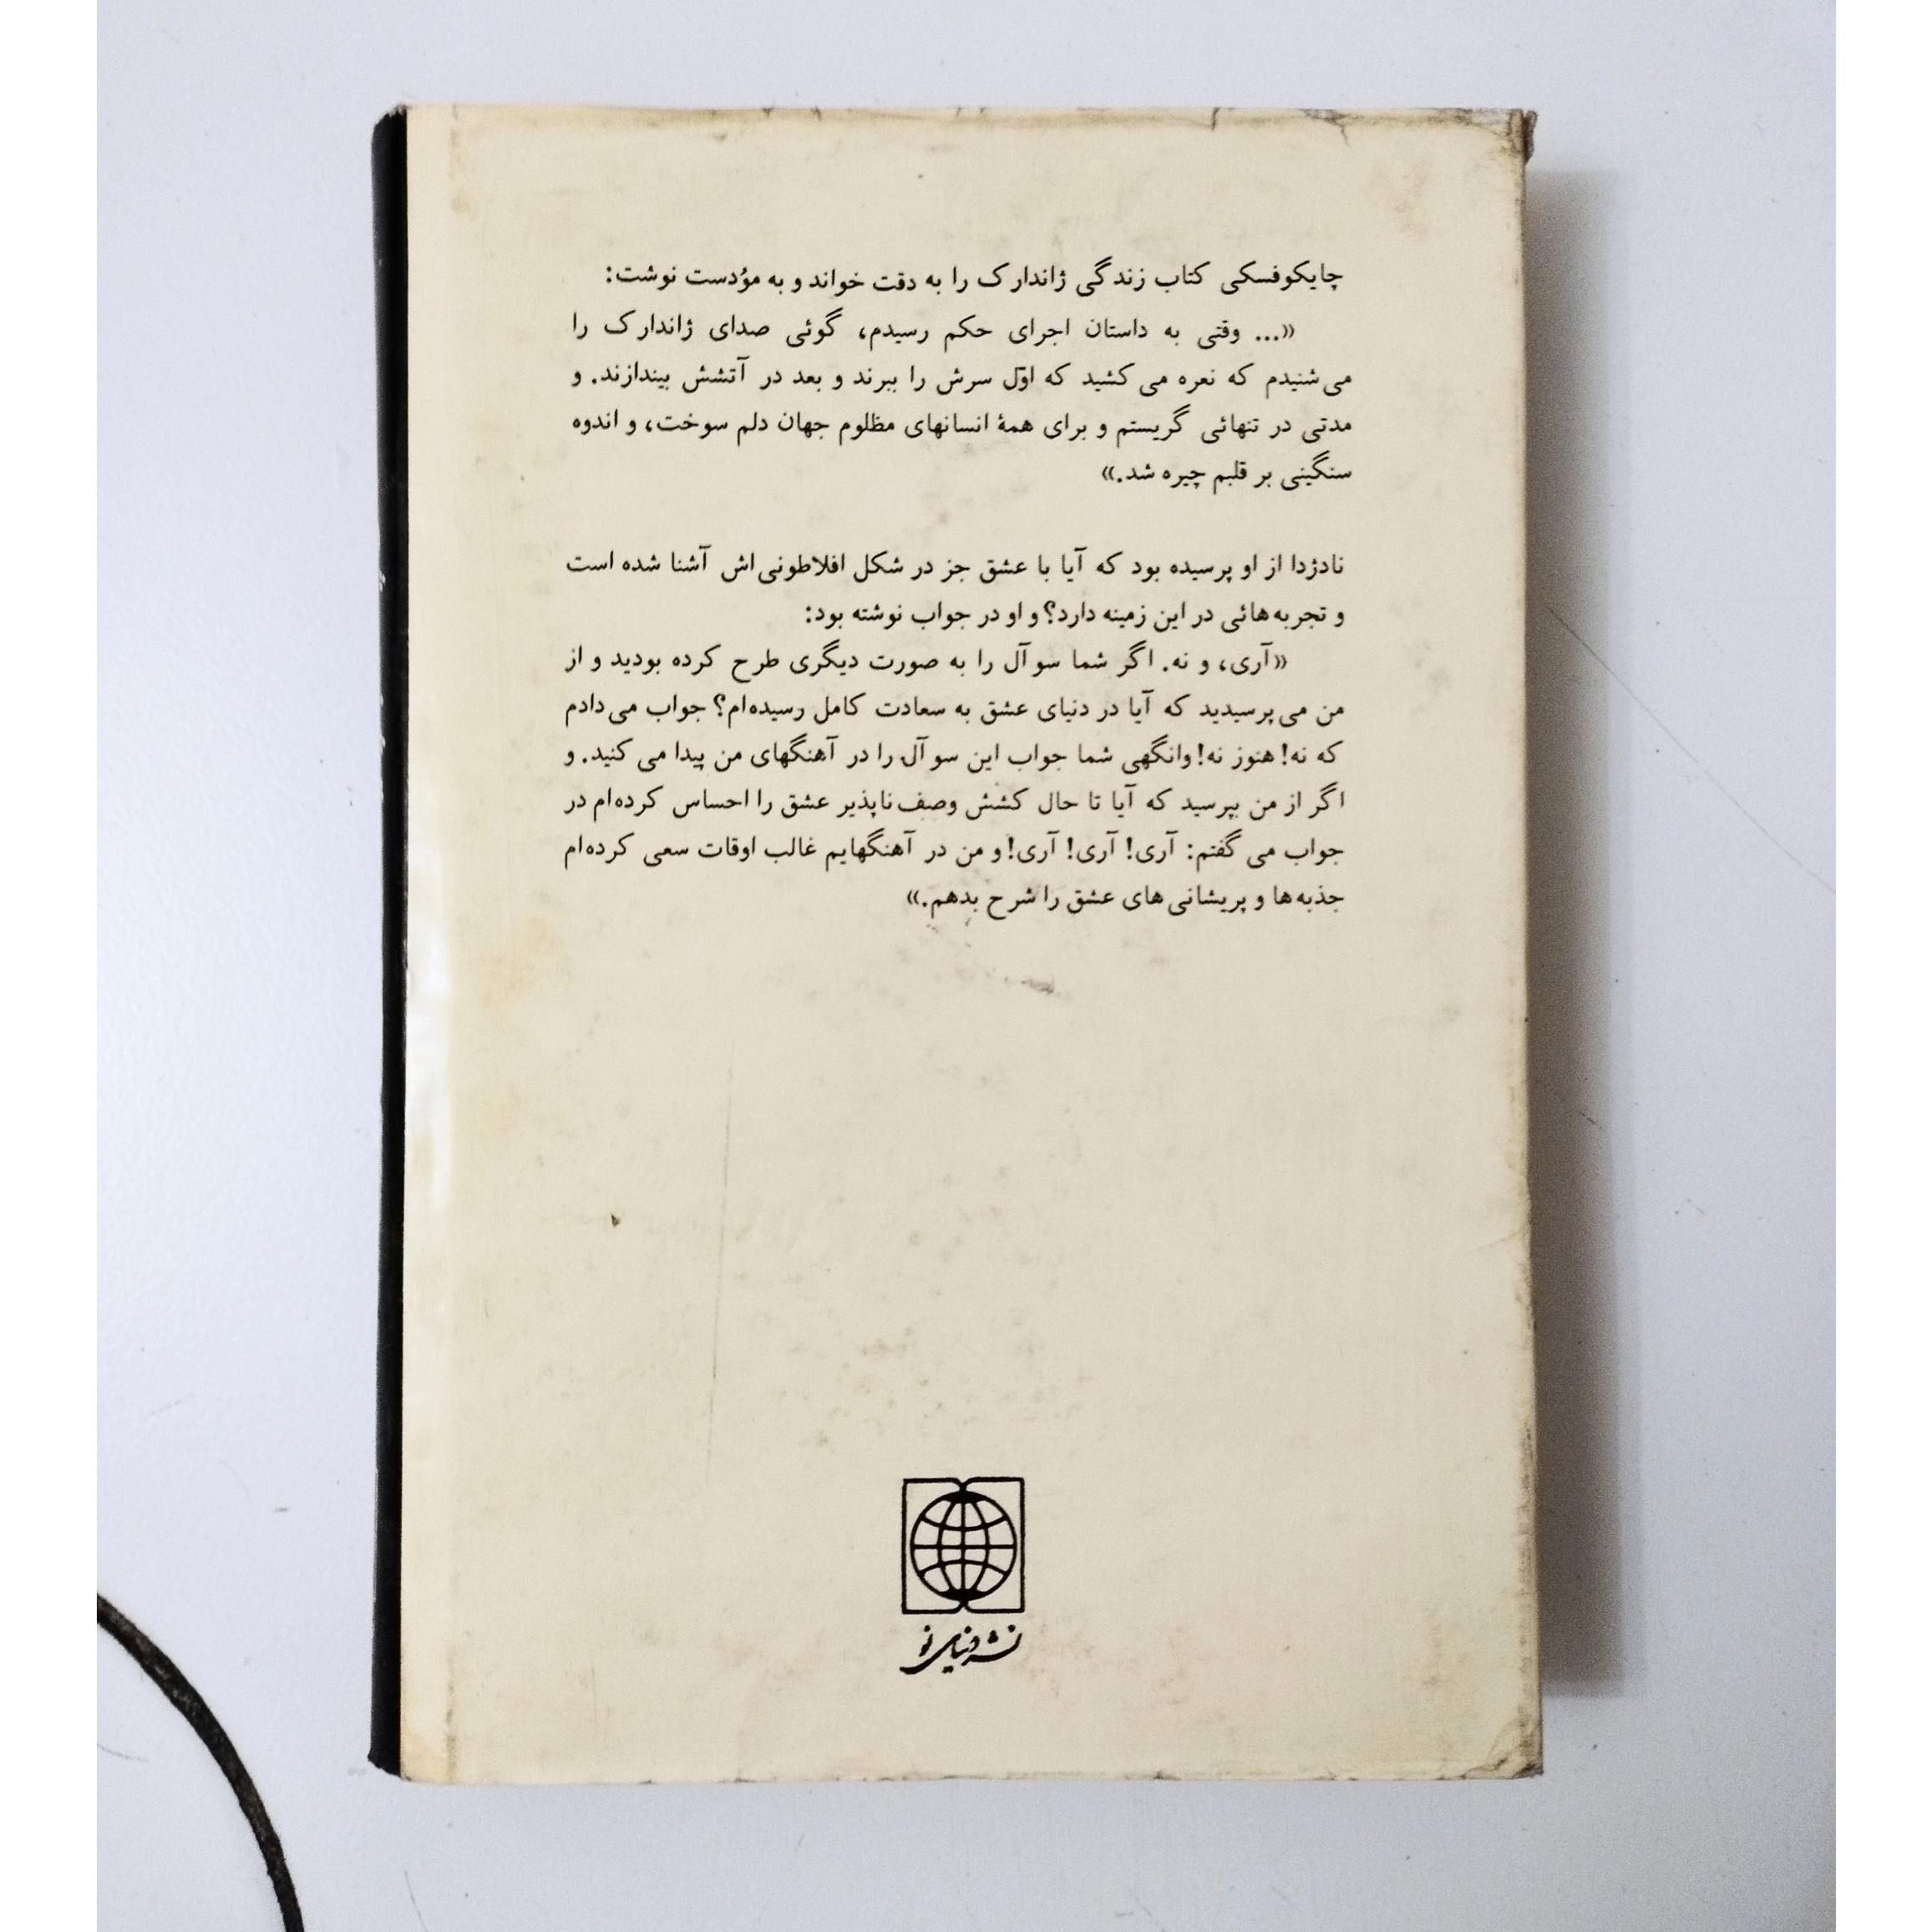 چایکوفسکی کتاب زندگی ژاندارک را به دقت خواند و به موُدست نوشت:
«... وقتی به داستان اجرای حکم رسیدم، گوئی صدای ژاندارک را
می‌شنیدم که نعره می‌کشید که اوّل سرش را ببرند و بعد در آتشش بیندازند. و
مدتی در تنهائی گریستم و برای همهٔ انسانهای مظلوم جهان دلم سوخت، و اندوه
سنگینی بر قلبم چیره شد.»
نادژدا از او پرسیده بود که آیا با عشق جز در شکل افلاطونی‌اش آشنا شده است
و تجربه‌هائی در این زمینه دارد؟ و او در جواب نوشته بود:
«آری، و نه. اگر شما سوآل را به صورت دیگری طرح کرده بودید و از
من می‌پرسیدید که آیا در دنیای عشق به سعادت کامل رسیده‌ام؟ جواب می‌دادم
که نه! هنوز نه! وانگهی شما جواب این سوآل را در آهنگهای من پیدا می‌کنید. و
اگر از من بپرسید که آیا تا حال کشش وصف‌ناپذیر عشق را احساس کرده‌ام در
جواب می‌گفتم: آری! آری! آری! و من در آهنگهایم غالب اوقات سعی کرده‌ام
جذبه‌ها و پریشانی‌های عشق را شرح بدهم.»
نشر دنیای نو